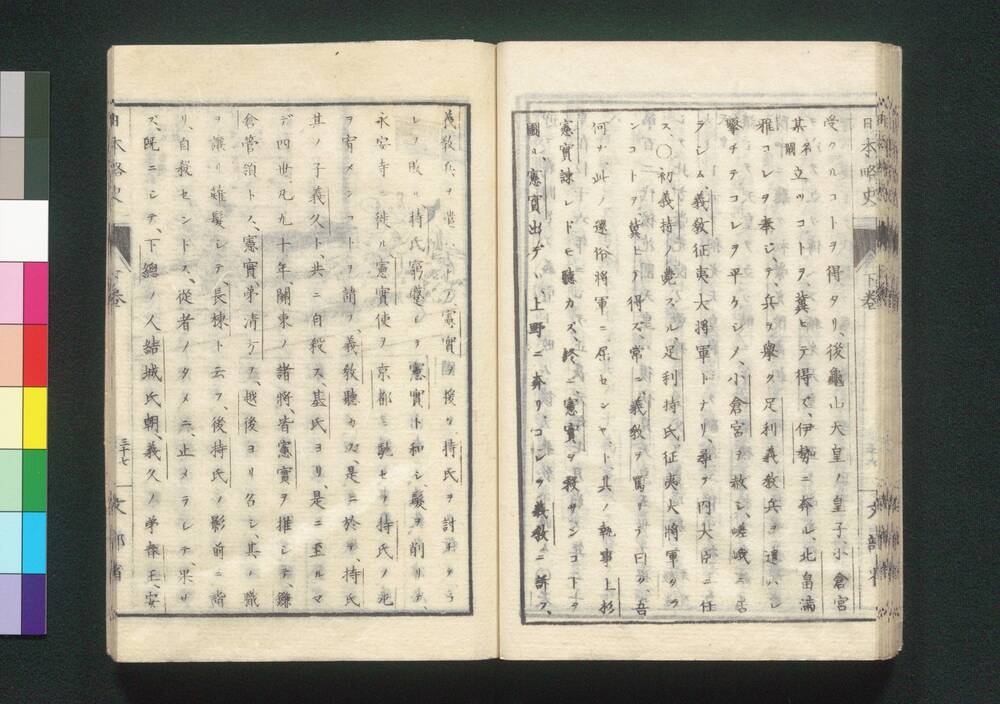 日本略史
下卷
文部省
受クルコトヲ得タリ後龜山天皇ノ皇子、小倉宮
其名闕立ツコトヲ冀ヒテ得ズ、伊勢ニ奔ル、北畠滿
雅コレヲ奉ジ、テ、兵ヲ擧ク足利義敎兵ヲ遣ハシ
擊チテコレヲ平ケシノ、小倉宮ヲ赦シ、嵯峨ニ居
ラシム、義敎征夷大將軍トナリ、尋ヲ内大臣ニ任
ス、〇初義持ノ薨スル足利持氏征夷大將軍タラ
ンコトヲ、冀ヒテ得ズ、常ニ義敎ヲ罵リテ曰ク、吾
何ゾ、此ノ還俗將軍ニ屈センヤ、ト、其ノ執事上杉
憲實諫レドモ聽カズ、終ニ憲實ヲ殺サンコトヲ
圖ル、憲實出デ、上野ニ奔リ、コレヲ義敎ニ訴フ、
義敎兵ヲ憲實ヲ援ケ持氏ヲ討タシ
レノ敗ル、持氏窮蹙シテ憲實ト和シ、髮ヲ削リテ、
永安寺ニ徙ル、憲實使ヲ京都ニ馳セテ持氏ノ死
ヲ宥メンコトヲ請フ、義敎聽カズ、是ニ於テ、持氏
其ノ子義久ト、共ニ自殺ス、基氏ヨリ、是ニ至ルマ
デ四世凡九十年、關東ノ諸將、皆憲實ヲ推シテ、鎌
倉管領トス、憲實、弟淸方ヲ、越後ヨリ召シ、其ノ職
ヲ讓リ薙髮シテ、長棟ト云フ、後持氏ノ影前ニ詣
リ、自殺セントス、從者ノタメニ、止メラレテ、果サ
ズ、既ニシテ、下總ノ人結城氏朝、義久ノ弟春王、安
日本略史
下卷
三十七
文部省